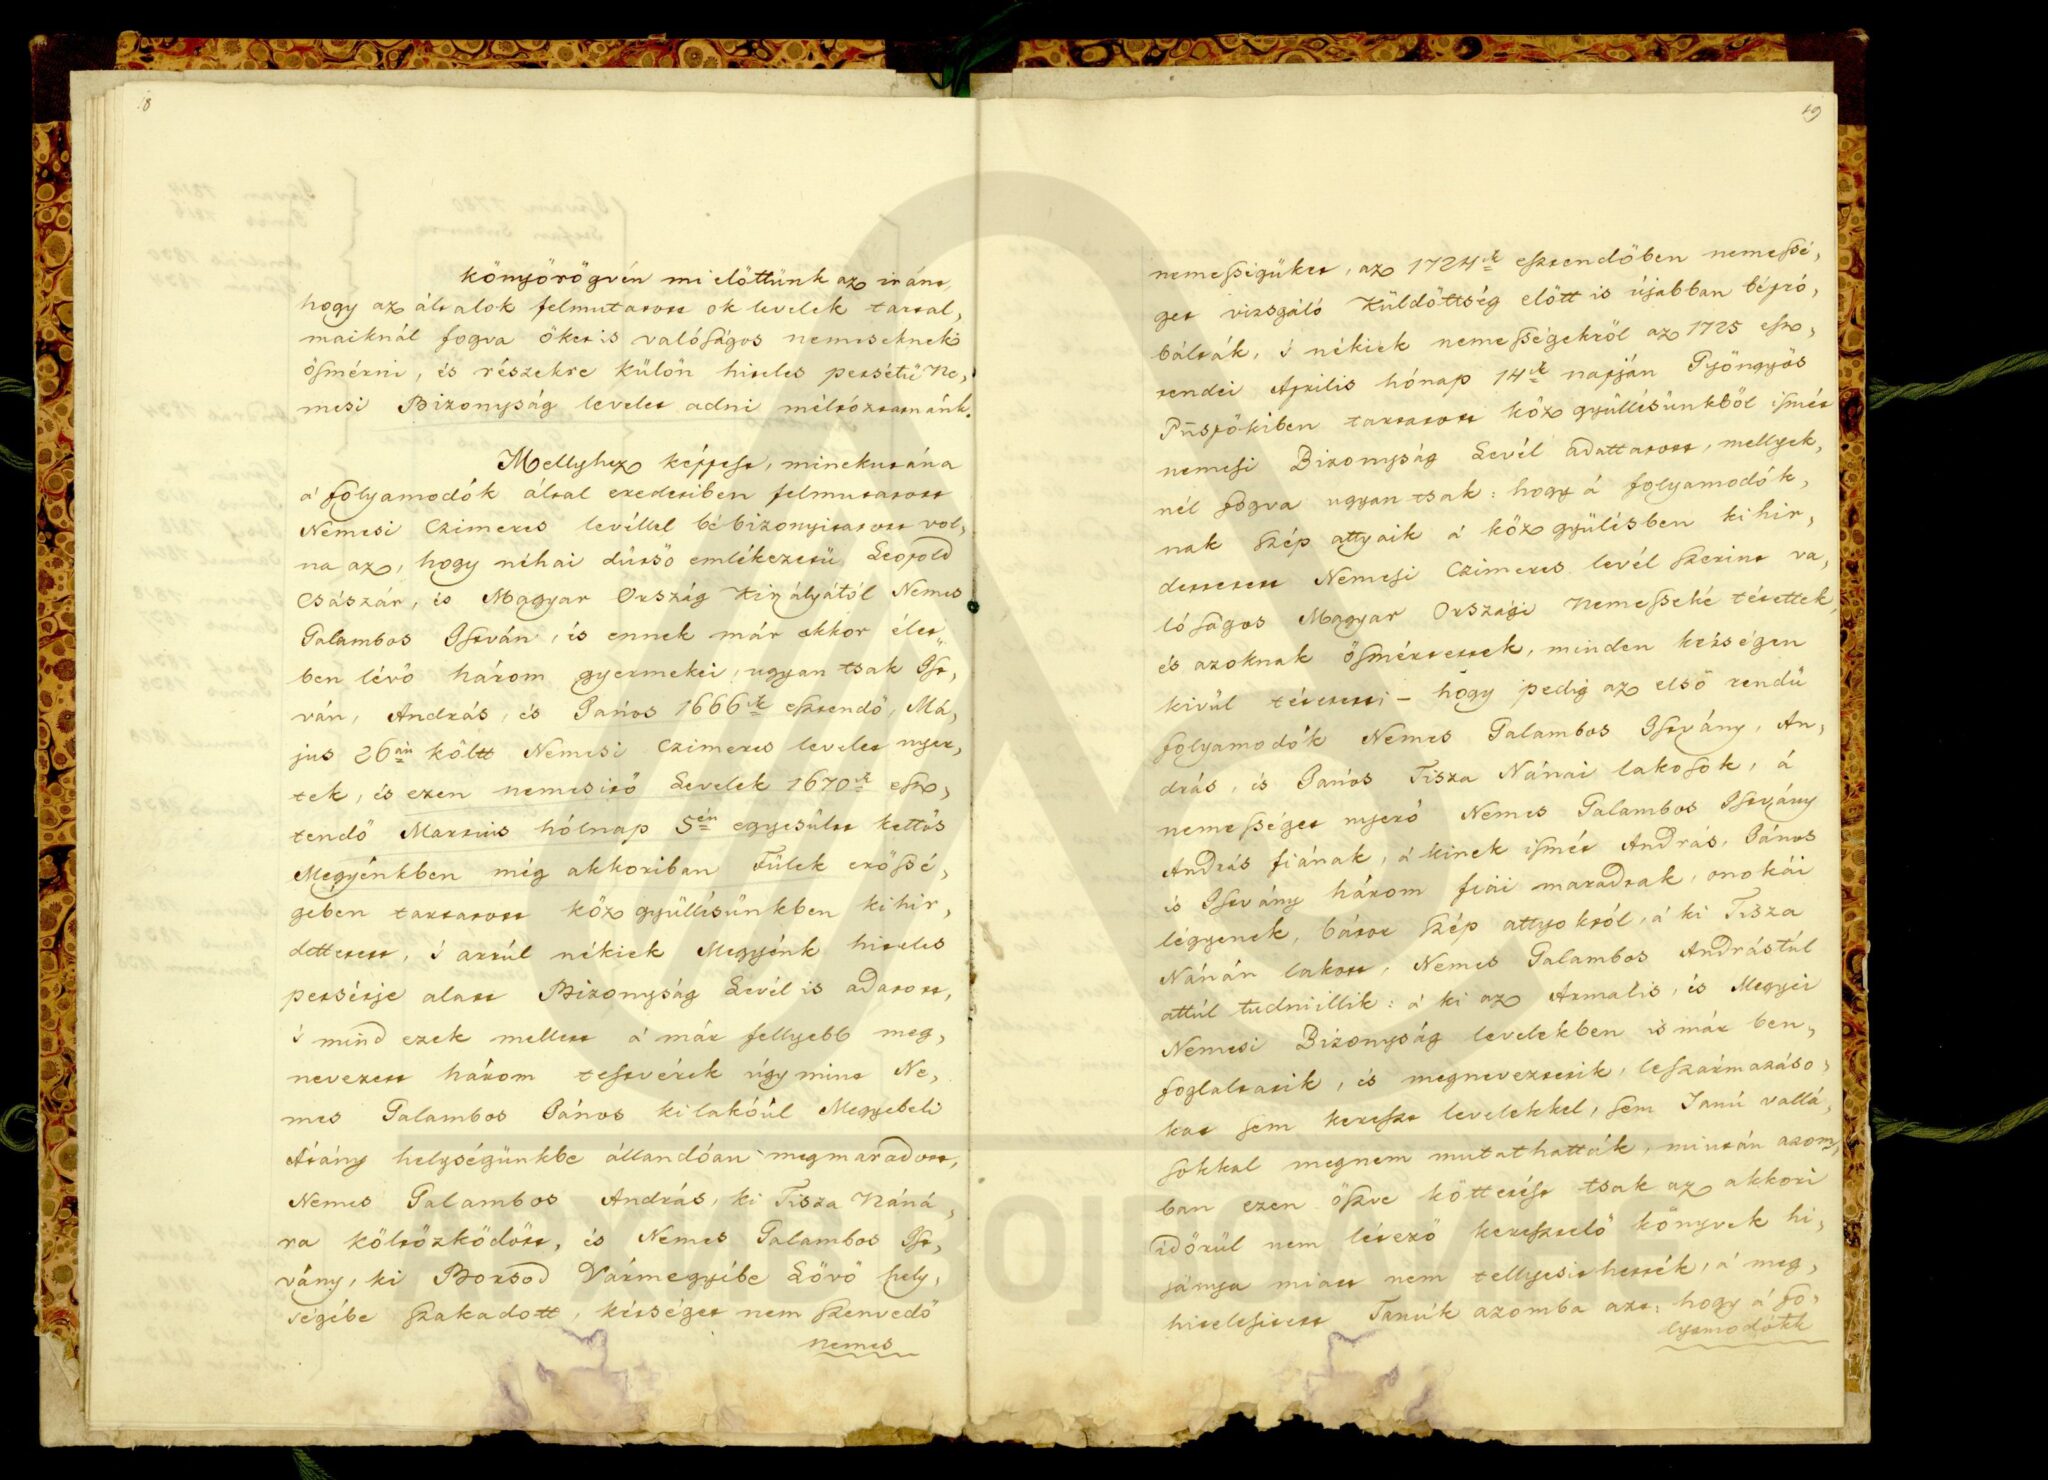 18
könyörögvén mi előttünk az iránt,
hogy az általok felmutatott ok levelek tartal„
maiknál fogva őket is valóságos nemeseknek
ösmérni, és részekre külön hiteles petsétű Ne„
mesi Bizonyság levelet adni méltóztatnánk.
Mellyhez képpest, minekutána
a' folyamodók által eredetiben felmutatott
Nemesi Czimeres levéllel bé bizonyitatott vol„
na az, hogy néhai dütső emlékezetü Leopold
Császár, és Magyar Ország Királyától Nemes
Galambos István, és ennek már akkor élet„
ben lévő három gyermekei, ugyan tsak Ist„
ván, András, és János 1666ik esztendő, Má„
jus 26án költt Nemesi Czimeres levelet nyer„
tek, és ezen nemesitő Levelek 1670ik esz„
tendő Martius hólnap 5én egyesűltt kettős
Megyénkben még akkoriban Fülek erőssé„
gében tartatott köz gyüllésünkben kihir„
dettetett, 's arrúl nékiek Megyénk hiteles
petsétje alatt Bizonyság Levél is adatott,
's mind ezek mellett a' már fellyebb meg„
nevezett három testvérek úgymint Ne„
mes Galambos János kilakóúl Megyebeli
Átány helységünkbe állandóan megmaradott,
Nemes Galambos András, ki Tisza Náná„
ra költözködött, és Nemes Galambos Ist„
vány, ki Borsod Vármegyébe Lövö hely„
ségébe szakadott, kétséget nem szenvedő
nemes
19
nemességüket, az 1724ik esztendőben nemessé„
get vizsgáló Küldöttség előtt is újabban bépró„
bálták, 's nékiek nemességekről az 1725 esz„
tendei Aprilis hónap 14ik napján Gyöngyös
Püspökiben tartatott köz gyüllésünkből ismét
nemesi Bizonyság Levél adattatott, mellyek„
nél fogva ugyan tsak: hogy a' folyamodók„
nak szép attyaik a' köz gyülésben kihir„
dettetett Nemesi Czimeres levél szerint va„
lóságos Magyar Országi Nemesseké tétettek,
és azoknak ösmértettek, minden kétségen
kivül tétetett; – hogy pedig az első rendü
folyamodók Nemes Galambos Istvány, An„
drás, és János Tisza Nánai lakosok, a'
nemességet nyerő Nemes Galambos Istvány
András fiának, a' kinek ismét András, János
és Istvány három fiai maradtak, onokái
légyenek, bátor szép attyokról, a' ki Tisza
Nánán lakott, Nemes Galambos Andrástúl
attúl tudniillik: a' ki az Armalis, és Megyei
Nemesi Bizonyság levelekben is már ben„
foglaltatik, és megneveztetik, leszármazáso„
kat sem kereszt levelekkel, sem Tanú vallá„
sokkal megnem mutathatták, mintán azom„
ban ezen öszve köttetést tsak az akkori
időrül nem létező keresztelő könyvek hi„
jánya miatt nem tellyesithették, a' meg„
hitelesitett Tanúk azomba azt: hogy a' fo„
lyamodókk
ARCHÍVUM